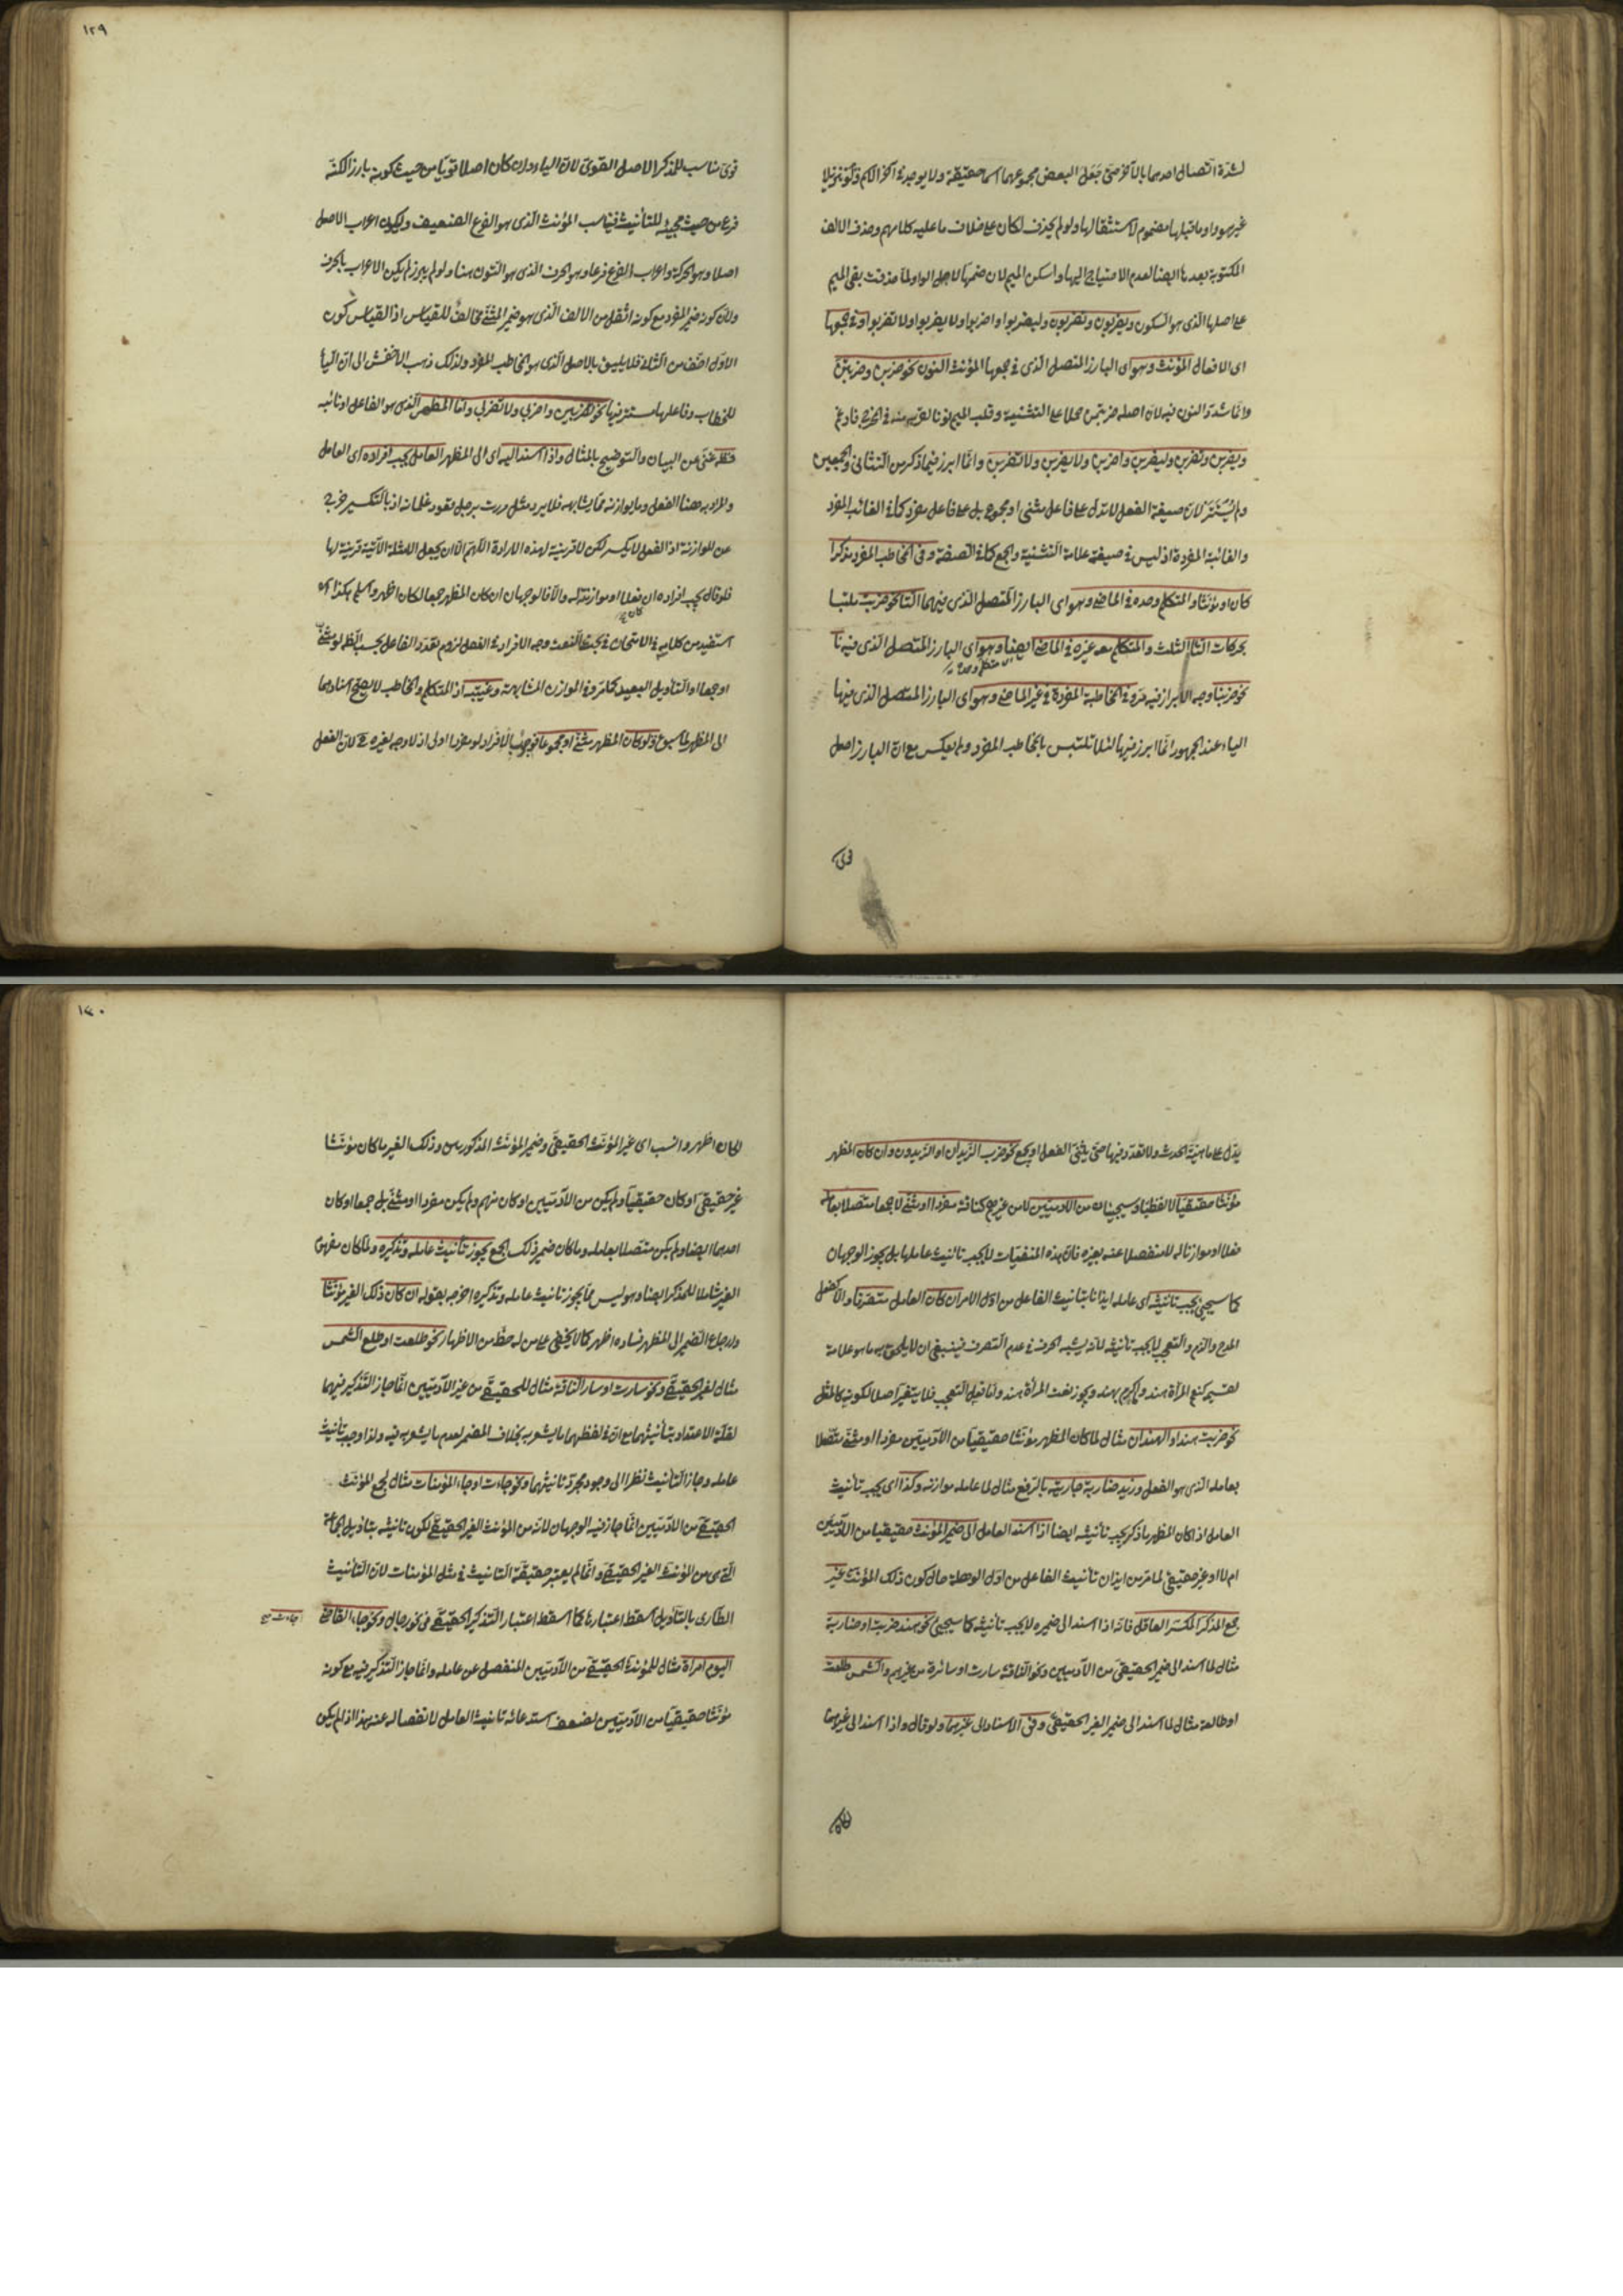 لشدة اتصال احدهما بالآخر حتى جعل البعض مجموعهما اسما حقيقة ولا يوجد في آخر الكلم
غير هو واو ما قبلها مضموم لاستثقالها ولو لم يحذف لكان على خلاف ما عليه كلامهم وحذف الالف
المكتوبة بعدها ايضا لعدم الاحتياج اليها واسكن الميم لان ضمها لاجل الواو ولما حذفت بقى الميم
على اصلها الذى هو السكون ويضربون وتضربون وليضربوا واضربوا ولا يضربوا ولا تضربوا وفى جمعها
اى الافعال المؤنث وهو اى البارز المتصل الذى فى جمعها المؤنث النون نحو ضربن وضربتن
وانما شدد النون فيه لان اصله ضربتمن حملا على التثنية وقلب الميم نونا لقربه منه فى المخرج فادغم
ويضربن وتضربن وليضربن واضربن ولا يضربن ولا تضربن وانما ابرز فيما ذكر من التثانى والجمعين
ولم يستتر لان صيغة الفعل لا تدل على فاعل مثنى او مجموع بل على فاعل مفرد كما فى الغائب المفرد
والغائبة المفردة اذ ليس فى صيغته علامة التثنية والجمع كما فى الصفة وفى المخاطب المفرد مذكرا
كان او مؤنثا والمتكلم وحده فى الماضى وهو اى البارز المتصل الذى فيهما التا نحو ضربت ملتبسا
بحركات التا الثلث والمتكلم معه غيره فى الماضى ايضا وهو اى البارز المتصل الذى فيه نا
نحو ضربنا وجه الابراز فيه مر وفى المخاطبة المفردة فى غير الماضى وهو اى البارز المتصل الذى فيها
الياء عند الجمهور انما ابرز فيها لئلا تلتبس بالمخاطب المفرد ولم يعكس مع ان البارز اصل
قوى
١٢٩
قوى مناسب للمذكر الاصل القوى لان الياء وان كان اصلا قويا من حيث كونه بارزا لكنه
فرع من حيث مجيئه للتأنيث فيناسب المؤنث الذى هو الفرع الضعيف وليكون اعراب الاصل
اصلا وهو الحركة واعراب الفرع فرعا وهو الحرف الذى هو النون هنا ولو لم يبرز لم يكن الاعراب بالحرف
ولان كونه ضمير المفرد مع كونه اثقل من الالف الذى هو ضمير المثنى مخالف للقياس اذ القياس كون
الاول اخف من الثانى فلا يليق بالاصل الذى هو المخاطب المفرد ولذلك ذهب الاخفش الى ان اليا
للخطاب وفاعلها مستتر فيها نحو تضربين واضربى ولا تضربى واما المظهر الذى هو الفاعل او نائبه
فظ غنى عن البيان والتوضيح بالمثال واذا اسند اليه اى الى المظهر العامل يجب افراده اى العامل
والمراد به هنا الفعل وما يوازنه مما يشابهه فلا يرد مثل مررت برجل قعود غلمانه اذ بالتكسير خرج
عن الموازنة اذ الفعل لا يكسر لكن لا قرينة لهذه الارادة اللهم الا ان يجعل الامثلة الآتية قرينة لها
فلو قال يجب افراده ان فعلا او موازنا له والا فالوجهان ان كان المظهر جمعا لكان اظهر واسلم هكذا
استفيد من كلامه فى الامتحان فى بحث النعت وجه الافراد فى الفعل لزوم تعدد الفاعل بحسب الظ لو ثنى
او جمع او التأويل البعيد كما مر وفى الموازن المشابهة وغيبته اذ المتكلم والمخاطب لا يصح اسنادهما
الى المظهر لما سبق ولو كان المظهر مثنى او مجموعا فوجوب الافراد لو مفردا اولى اذ لا وجه لغيره ح لان الفعل
يدل على ماهية الحدث ولا تعدد فيها حتى يثنى الفعل او يجمع نحو ضرب الزيدان او الزيدون وان كان المظهر
مؤنثا حقيقيا لا لفظيا وسيجيئان من الآدميين لا من غيرهم كناقة مفردا او مثنى لا جمعا متصلا بعامله
فعلا او موازنا له لا منفصلا عنه بغيره فان هذه المنفيات لا يجب تأنيث عاملها بل يجوز الوجهان
كما سيجئ يجب تأنيثه اى عامله ايذانا بتانيث الفاعل من اول الامر ان كان العامل متصرفا والا كفعل
المدح والذم والتعجب لا يجب تأنيثه لانه يشبه الحرف فى عدم التصرف فينبغى ان لا يلحق به ما هو علامة
لقسيمه كنعم المرأة هند واكرم بهند ويجوز نعمت المرأة هند واما فعل التعجب فلا يتغير اصلا لكونه كالمثل
نحو ضربت هند او الهندان مثال لما كان المظهر مؤنثا حقيقيا من الآدميين مفردا او مثنى متصلا
بعامله الذى هو الفعل وزيد ضاربة جاريته بالرفع مثال لما عامله موازنه وكذا اى يجب تأنيث
العامل اذا كان المظهر ما ذكر يجب تأنيثه ايضا اذا اسند العامل الى ضمير المؤنث حقيقيا من الآدميين
ام لا او غير حقيقى لما مر من ايذان تأنيث الفاعل من اول الوهلة حال كون ذلك المؤنث غير
جمع المذكر المكسر العاقل فانه اذا اسند الى ضميره لا يجب تأنيثه كما سيجيئ نحو هند ضربت او ضاربة
مثال لما اسند الى ضمير الحقيقى من الآدميين ونحو الناقة سارت او سائرة من غيرهم والشمس طلعت
او طالعة مثال لما اسند الى ضمير الغير الحقيقى وفى الاسناد الى غيرهما ولو قال واذا اسند الى غيرهما
لكان
١٣٠
لكان اظهر وانسب اى غير المؤنث الحقيقى وضمير المؤنث المذكورين وذلك الغير ما كان مؤنثا
غير حقيقى او كان حقيقيا ولم يكن من الآدميين او كان منهم ولم يكن مفردا او مثنى بل جمعا او كان
احدهما ايضا ولم يكن متصلا بعامله وما كان ضمير ذلك الجمع يجوز تأنيث عامله وتذكيره ولما كان مفهوم
الغير شاملا للمذكر ايضا وهو ليس مما يجوز تانيث عامله وتذكيره اخرجه بقوله ان كان ذلك الغير مؤنثا
وارجاع الضمير الى المظهر فساده اظهر كما لا يخفى على من له حظ من الاظهار نحو طلعت او طلع الشمس
مثال لغير الحقيقى ونحو سارت او سار الناقة مثال للحقيقى من غير الآدميين انما جاز التذكير فيهما
لقلة الاعتداد بتأنيثهما مع ان فى لفظهما ما يشعر به بخلاف المضمر لعدم ما يشعر به فيه ولذا وجب تأنيث
عامله وجاز التأنيث نظرا الى وجود مجرد تانيثهما ونحو جاءت او جاء المؤمنات مثال لجمع المؤنث
الحقيقى من الآدميين انما جاز فيه الوجهان لانه من المؤنث الغير الحقيقى لكون تانيثه بتاويل الجماعة
التى من المؤنث الغير الحقيقى وانما لم يعتبر حقيقة التانيث فى مثل المؤمنات لان التأنيث
الطارى بالتأويل اسقط اعتبارها كما اسقط اعتبار التذكير الحقيقى فى نحو رجال ونحو جاء القاضى
جاءت صح
اليوم امرأة مثال للمؤنث الحقيقى من الآدميين المنفصل عن عامله وانما جاز التذكير فيه مع كونه
مؤنثا حقيقيا من الآدميين لضعف استدعائه تانيث العامل لانفصاله عنه هذا اذا لم يكن